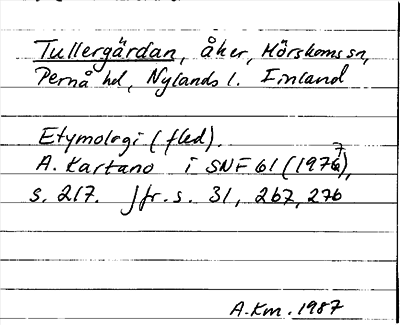 Tullergärdan, åker, Mörskoms sn,
Pernå hd, Nylands l. Finland
Etymologi (fled).
A. Kartano i SNF 61 (1977),
s. 217. Jfr. s. 31, 267, 276
A.Km. 1987